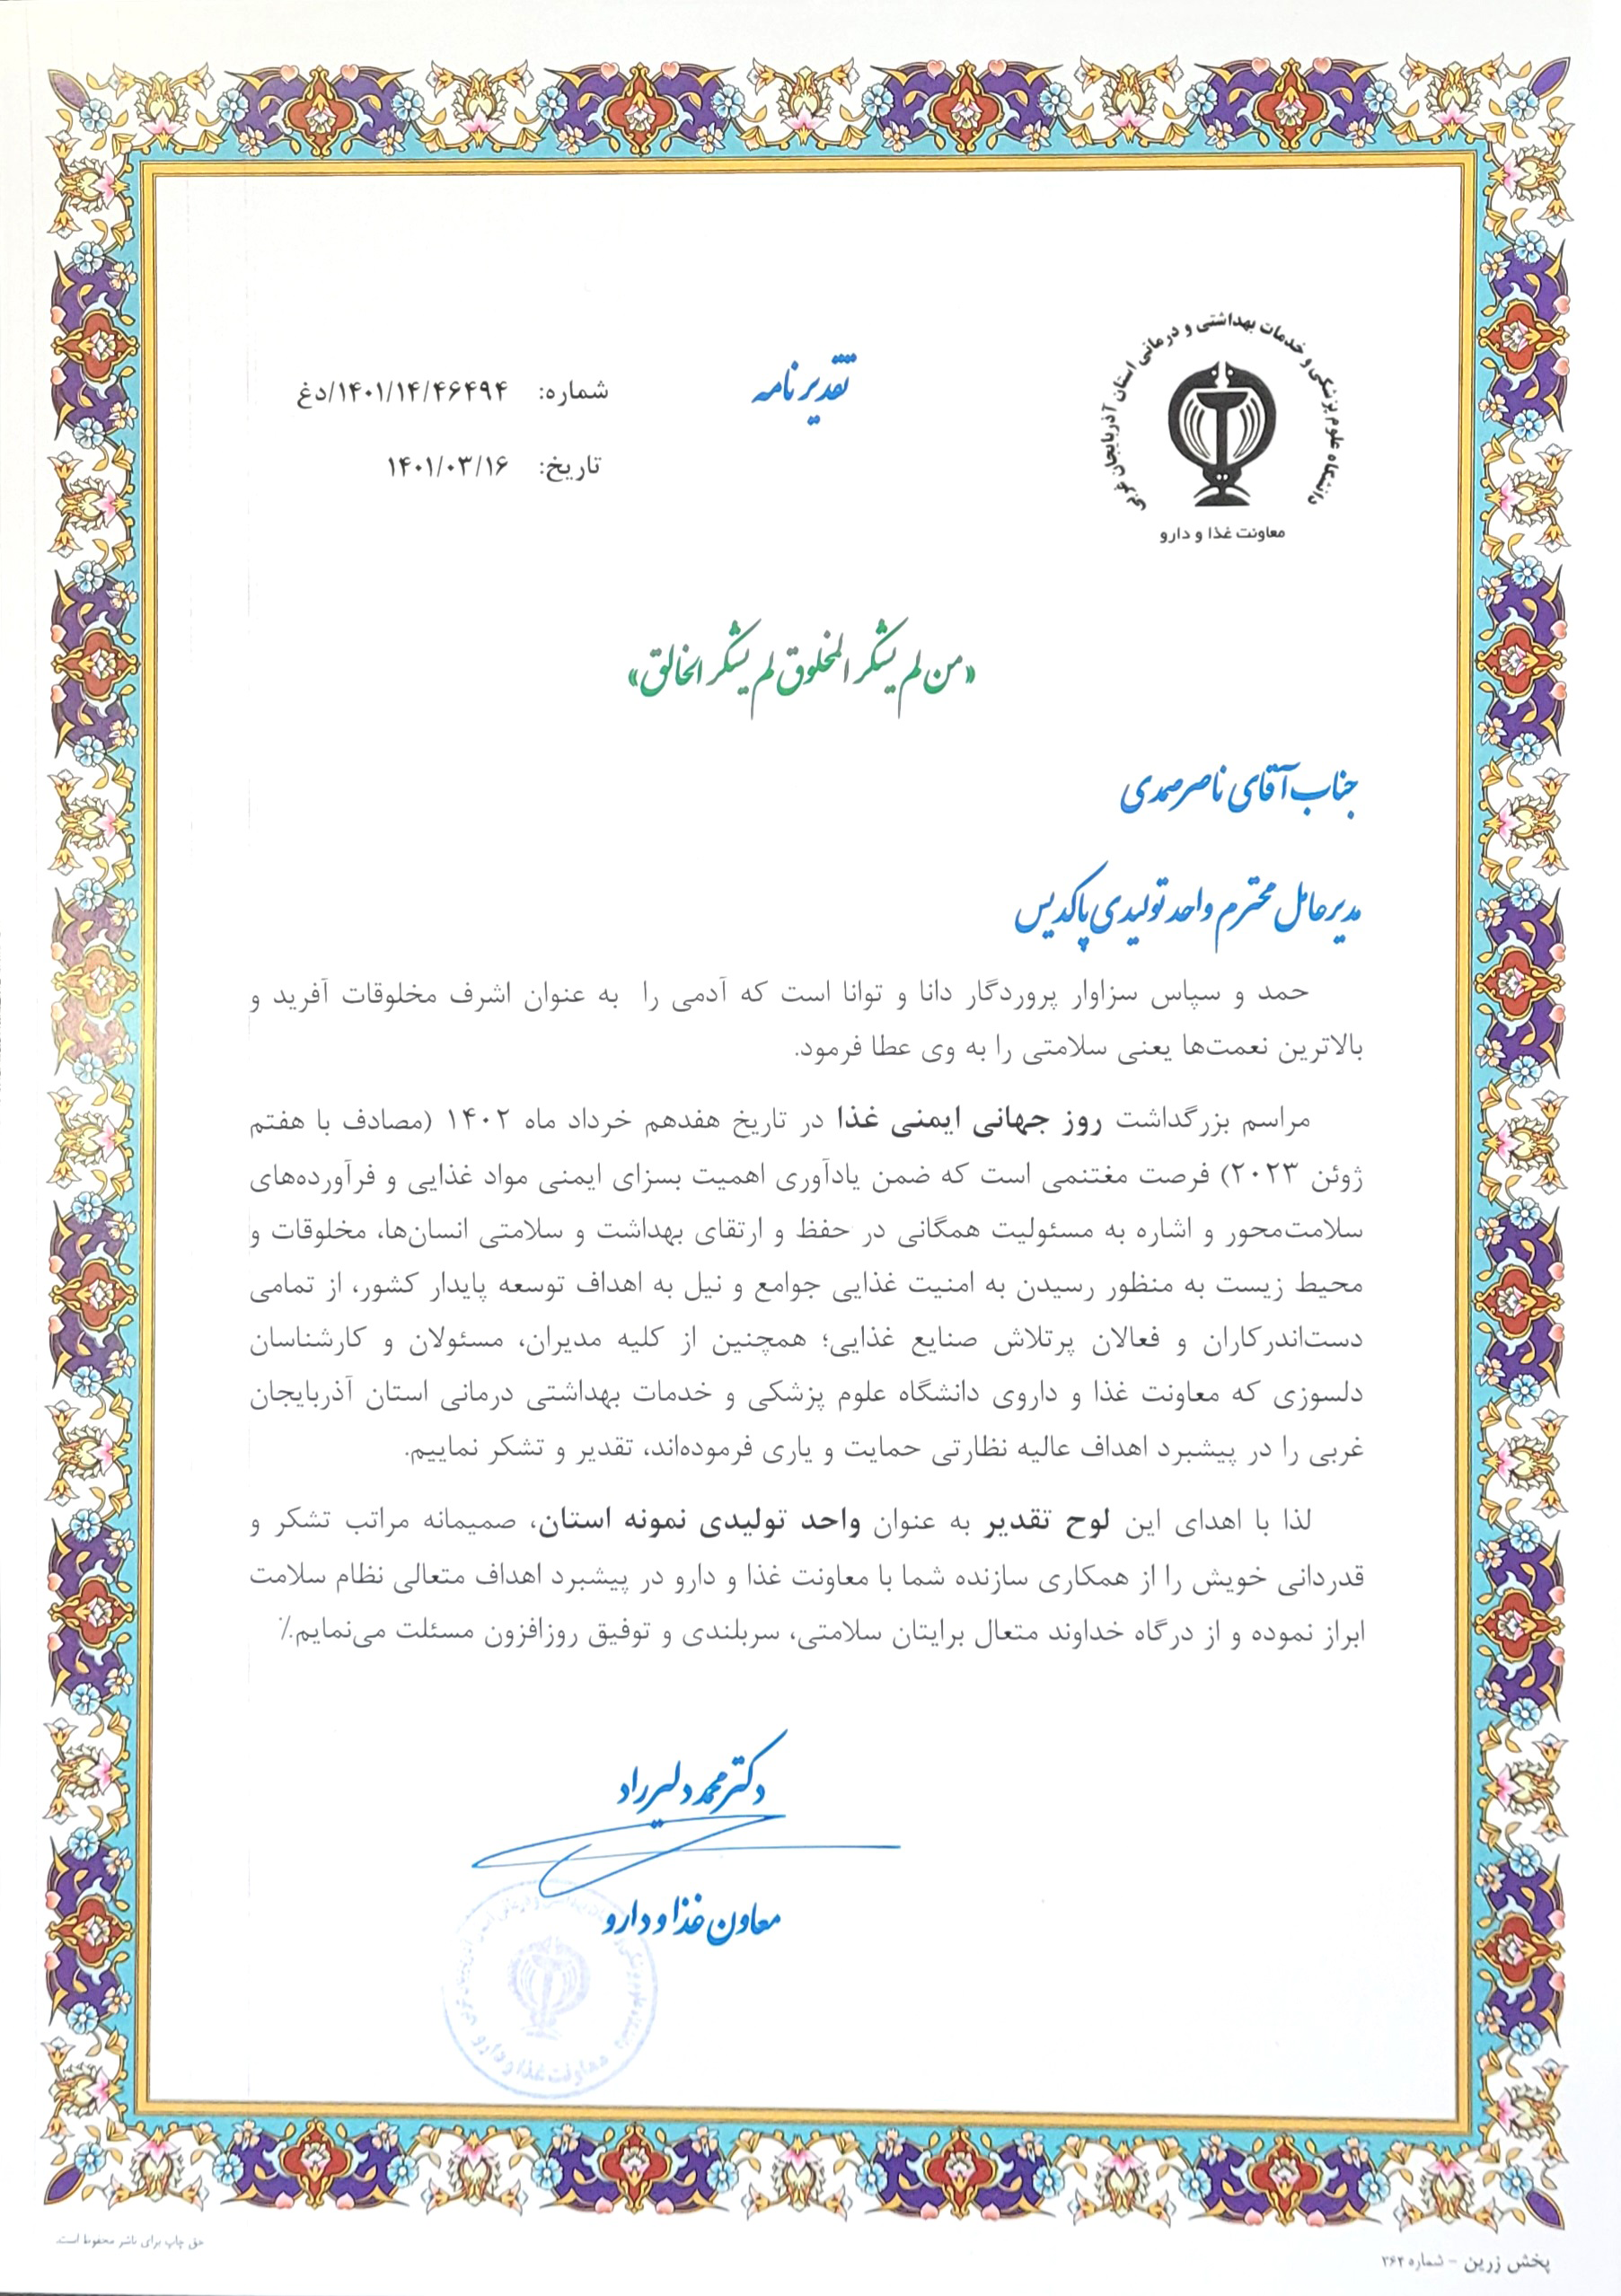 دانشگاه علوم پزشکی و خدمات بهداشتی و درمانی استان آذربایجان غربی
معاونت غذا و دارو
تقدیرنامه
شماره: ۱۴۰۱/۱۴/۴۶۴۹۴/دغ
تاریخ: ۱۴۰۱/۰۳/۱۶
«من لم یشکر المخلوق لم یشکر الخالق»
جناب آقای ناصر صمدی
مدیرعامل محترم واحد تولیدی پاکدیس
حمد و سپاس سزاوار پروردگار دانا و توانا است که آدمی را به عنوان اشرف مخلوقات آفرید و
بالاترین نعمت‌ها یعنی سلامتی را به وی عطا فرمود.
مراسم بزرگداشت روز جهانی ایمنی غذا در تاریخ هفدهم خرداد ماه ۱۴۰۲ (مصادف با هفتم
ژوئن ۲۰۲۳) فرصت مغتنمی است که ضمن یادآوری اهمیت بسزای ایمنی مواد غذایی و فرآورده‌های
سلامت‌محور و اشاره به مسئولیت همگانی در حفظ و ارتقای بهداشت و سلامتی انسان‌ها، مخلوقات و
محیط زیست به منظور رسیدن به امنیت غذایی جوامع و نیل به اهداف توسعه پایدار کشور، از تمامی
دست‌اندرکاران و فعالان پرتلاش صنایع غذایی؛ همچنین از کلیه مدیران، مسئولان و کارشناسان
دلسوزی که معاونت غذا و داروی دانشگاه علوم پزشکی و خدمات بهداشتی درمانی استان آذربایجان
غربی را در پیشبرد اهداف عالیه نظارتی حمایت و یاری فرموده‌اند، تقدیر و تشکر نماییم.
لذا با اهدای این لوح تقدیر به عنوان واحد تولیدی نمونه استان، صمیمانه مراتب تشکر و
قدردانی خویش را از همکاری سازنده شما با معاونت غذا و دارو در پیشبرد اهداف متعالی نظام سلامت
ابراز نموده و از درگاه خداوند متعال برایتان سلامتی، سربلندی و توفیق روزافزون مسئلت می‌نمایم.٪
دکتر محمد دلیرراد
معاون غذا و دارو
معاونت غذا و دارو
حق چاپ برای ناشر محفوظ است.
پخش زرین - شماره ۳۶۲